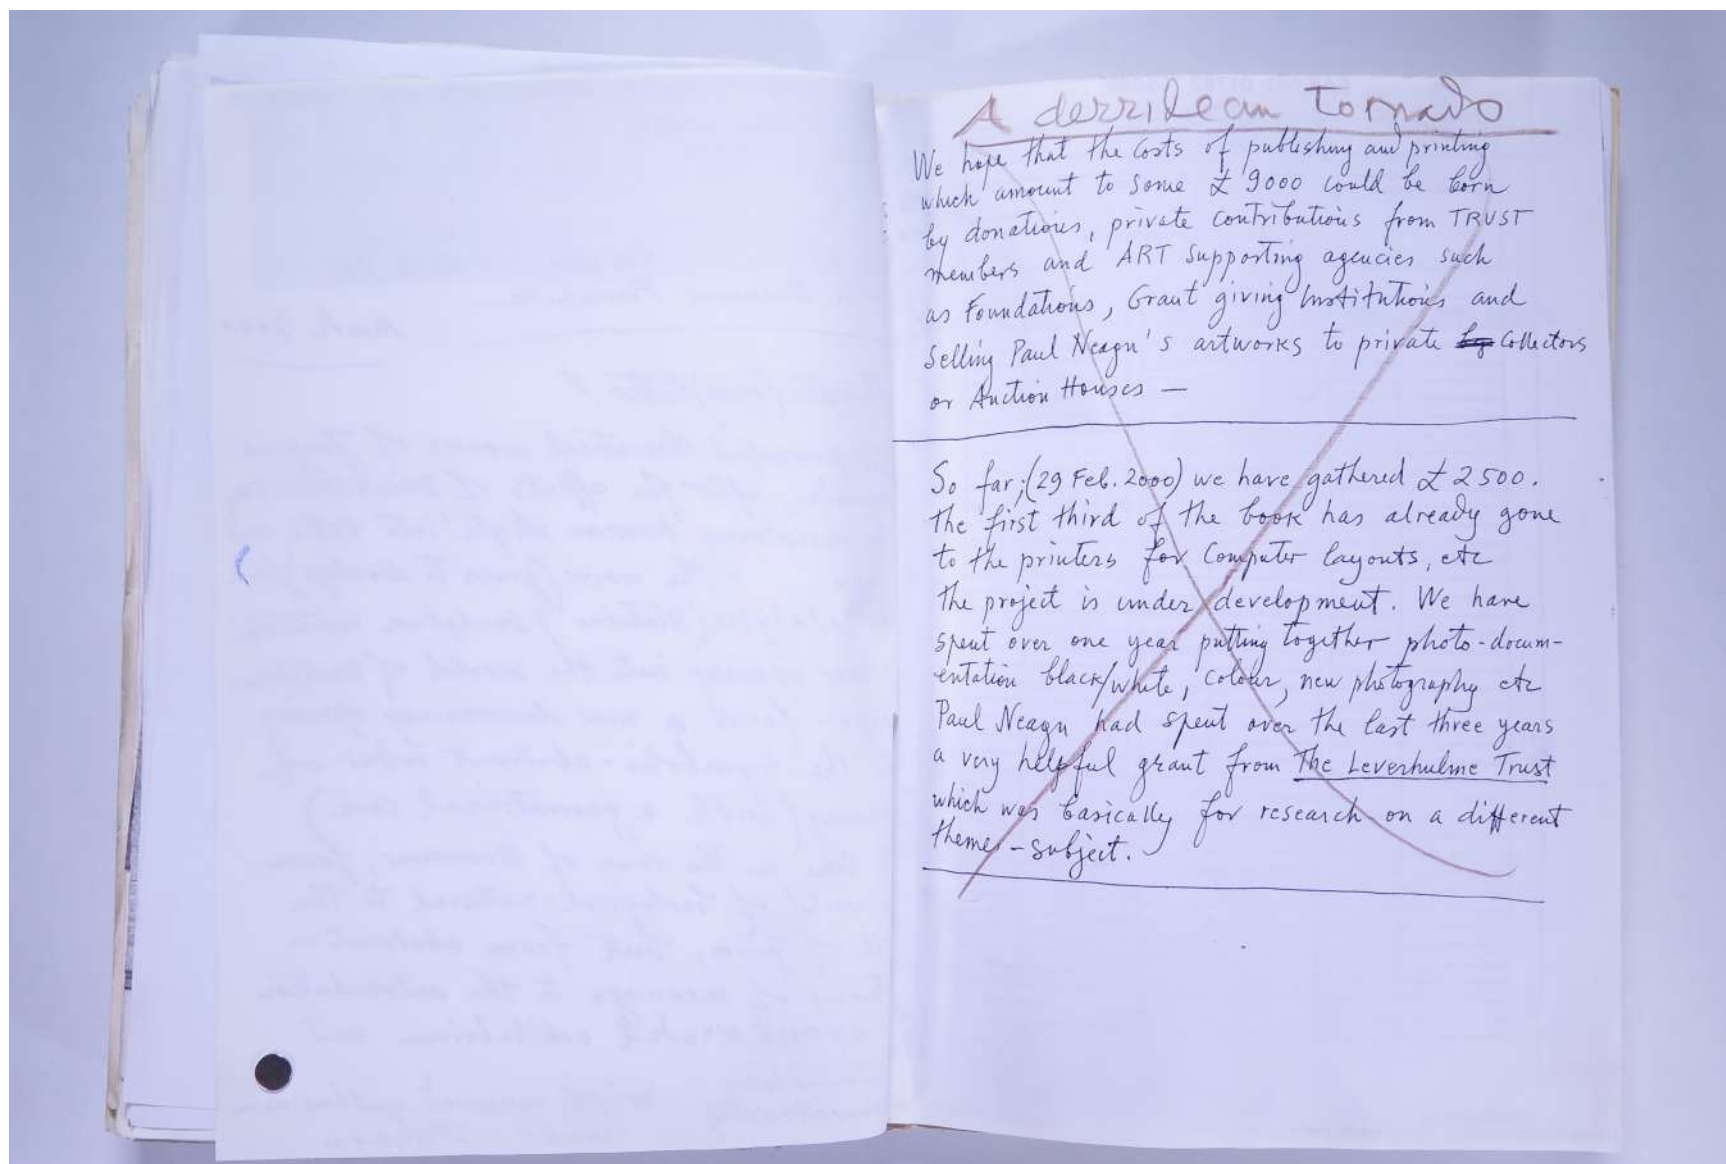 A derridean tornado
We hope that the costs of publishing and printing
which amount to some £ 9000 could be born
by donations, private contributions from TRUST
members and ART supporting agencies such
as Foundations, Grant giving Institutions and
Selling Paul Neagu's artworks to private Collectors
or Auction Houses —
So far; (29 Feb. 2000) we have gathered £ 2500.
the first third of the book has already gone
to the printers for Computer layouts, etc
the project is under development. We have
spent over one year putting together photo-docum-
entation black/white, colour, new photography etc
Paul Neagu had spent over the last three years
a very helpful grant from The Leverhulme Trust
which was basically for research on a different
theme - subject.